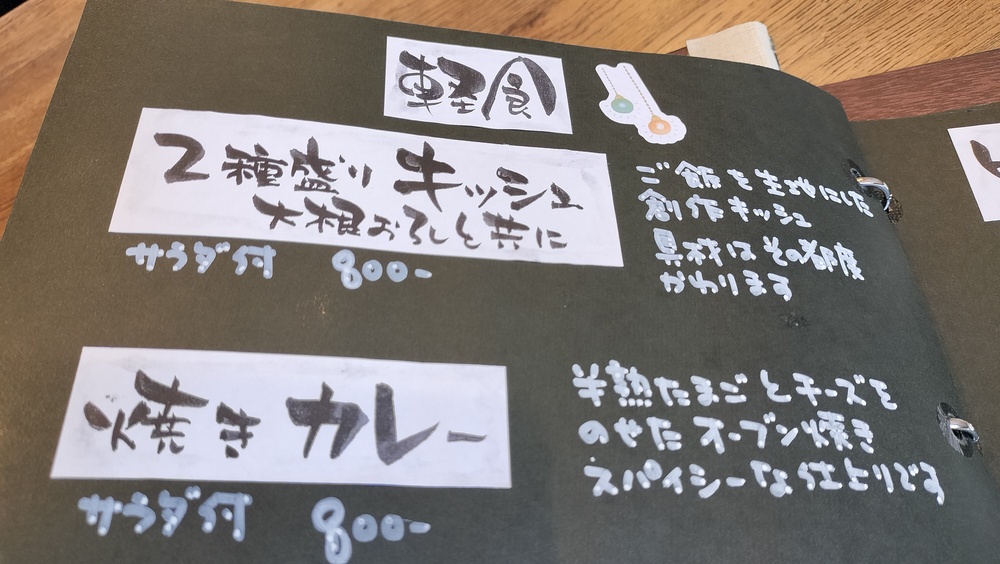 軽食
2種盛り キッシュ
大根おろしと共に
サラダ付 800-
ご飯を生地にした
創作キッシュ
具材はその都度
かわります
焼きカレー
サラダ付 800-
半熟たまごとチーズを
のせたオーブン焼き
スパイシーな仕上りです